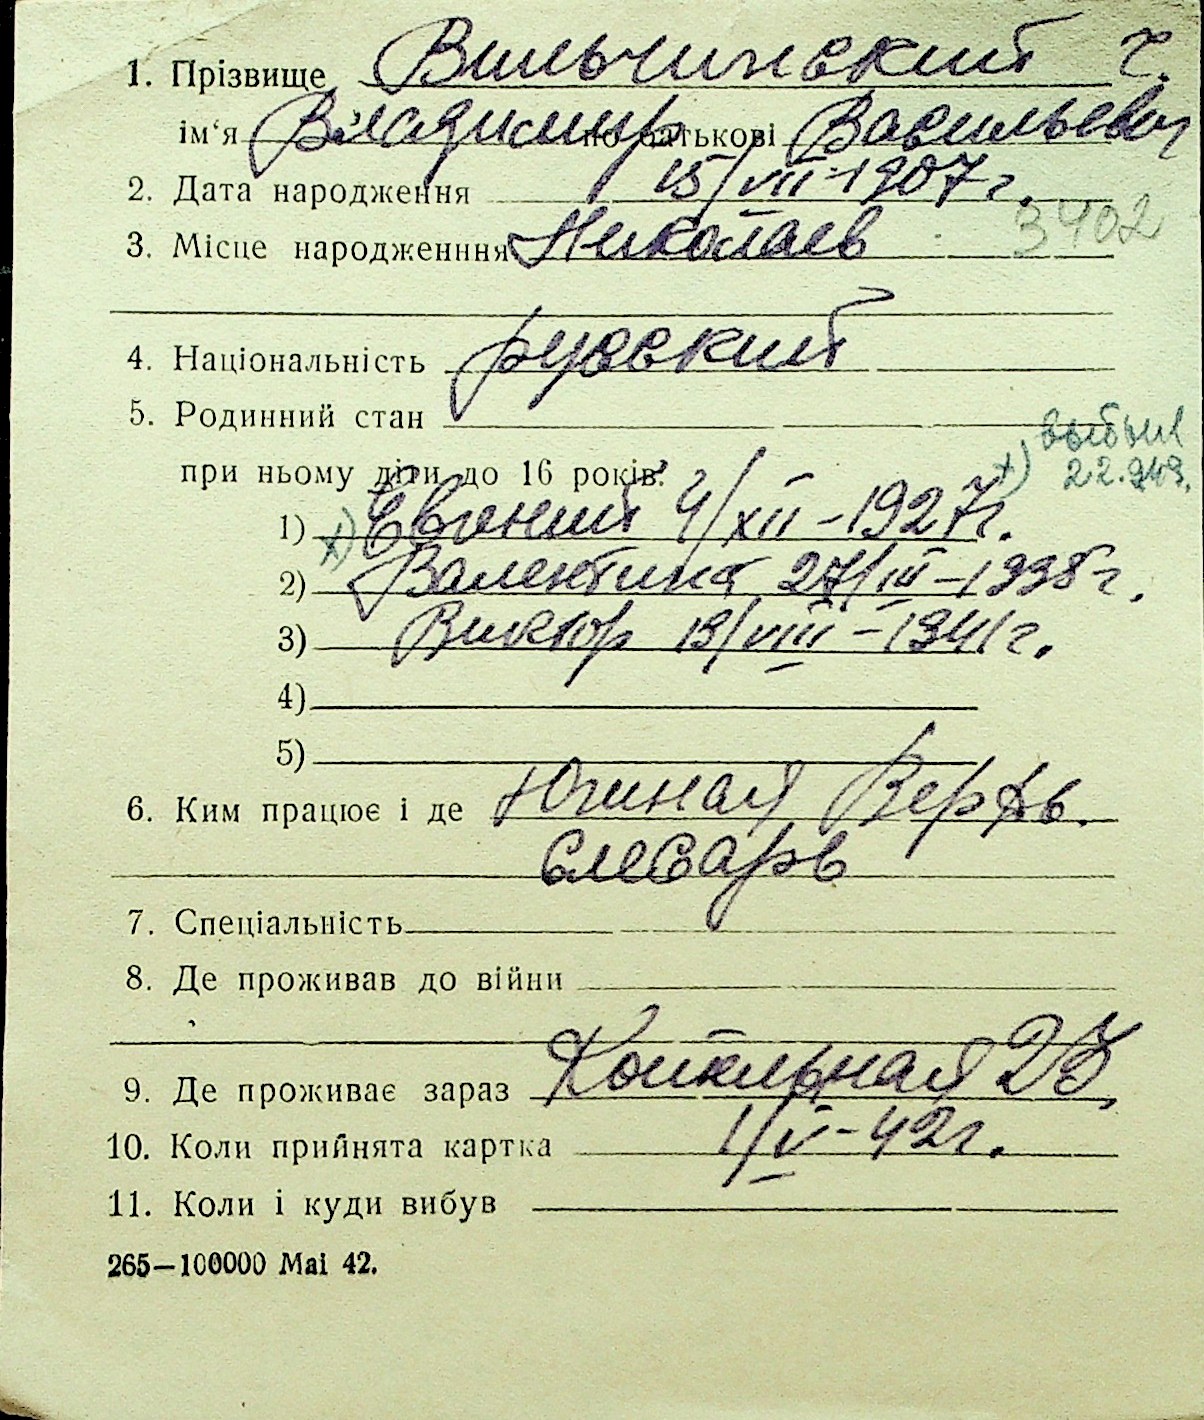 1. Прізвище Вильчинский Г.
ім‘я Владимир по батькові Васильевич
2. Дата народження 15/VII-1907 г.
3. Місце народженння Николаев 3402
4. Національність русский
5. Родинний стан
выбыл
при ньому діти до 16 років:
х) 22.943.
1) х) Евгений 4/XII-1927г.
2) Валентина 27/III-1938г.
3) Виктор 19/VIII-1941г.
4)
5)
6. Ким працює і де Южная Верфь.
слесарь
7. Спеціальність
8. Де проживав до війни
9. Де проживає зараз
10. Коли прийнята картка 1/V-42г.
11. Коли і куди вибув
265—100000 Mai 42.